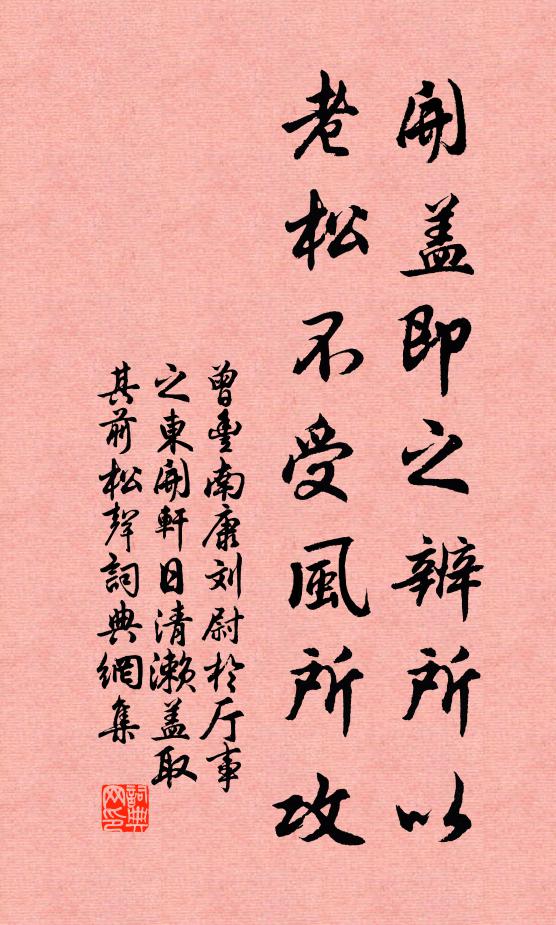 開盖即之辨所以
老松不受風所攻
曾豊南康刘尉於厅事
之東開軒日清濑盖取
其前松聲詞典網集